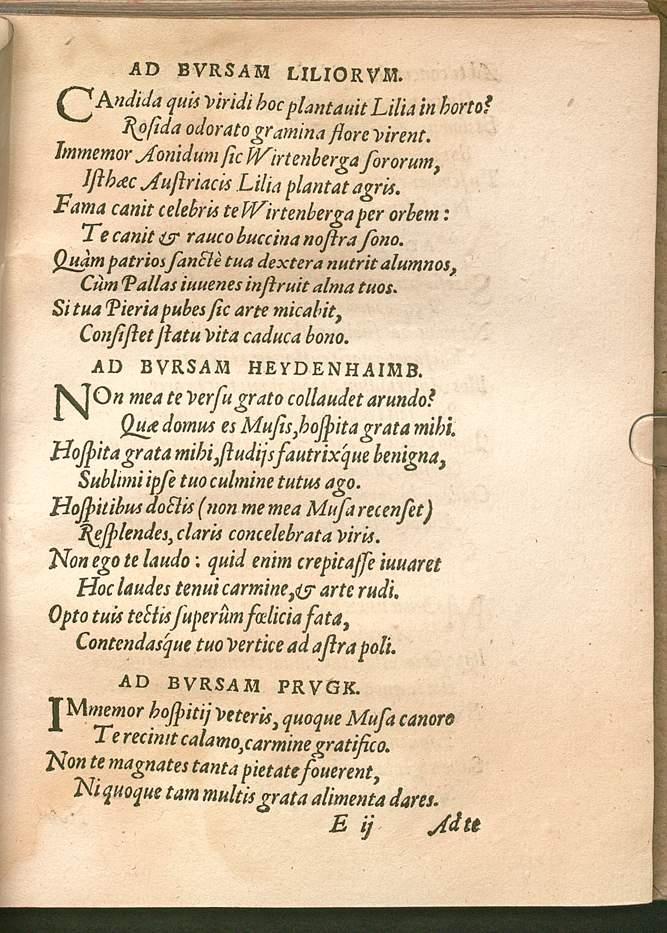 AD BVRSAM LILIORVM.
CAndida quis viridi hoc plantauit Lilia in horto?
Roſida odorato gramina flore virent.
Immemor Aonidum ſic Wirtenberga ſororum,
Iſthæc Auſtriacis Lilia plantat agris.
Fama canit celebris te Wirtenberga per orbem:
Te canit & rauco buccina noſtra ſono.
Quàm patrios ſanctè tua dextera nutrit alumnos,
Cùm Pallas iuuenes inſtruit alma tuos.
Si tua Pieria pubes ſic arte micabit,
Conſiſtet ſtatu vita caduca bono.
AD BVRSAM HEYDENHAIMB.
NOn mea te verſu grato collaudet arundo?
Quæ domus es Muſis, hoſpita grata mihi.
Hoſpita grata mihi, ſtudijs fautrix´que benigna,
Sublimi ipſe tuo culmine tutus ago.
Hoſpitibus doctis (non me mea Muſa recenſet)
Reſplendes, claris concelebrata viris.
Non ego te laudo: quid enim crepitaſſe iuuaret
Hoc laudes tenui carmine, & arte rudi.
Opto tuis tectis ſuperûm fœlicia fata,
Contendas´que tuo vertice ad aſtra poli.
AD BVRSAM PRVGK.
IMmemor hoſpitij veteris, quoque Muſa canoro
Te recinit calamo, carmine gratifico.
Non te magnates tanta pietate fouerent,
Ni quoque tam multis grata alimenta dares.
E ij Ad te